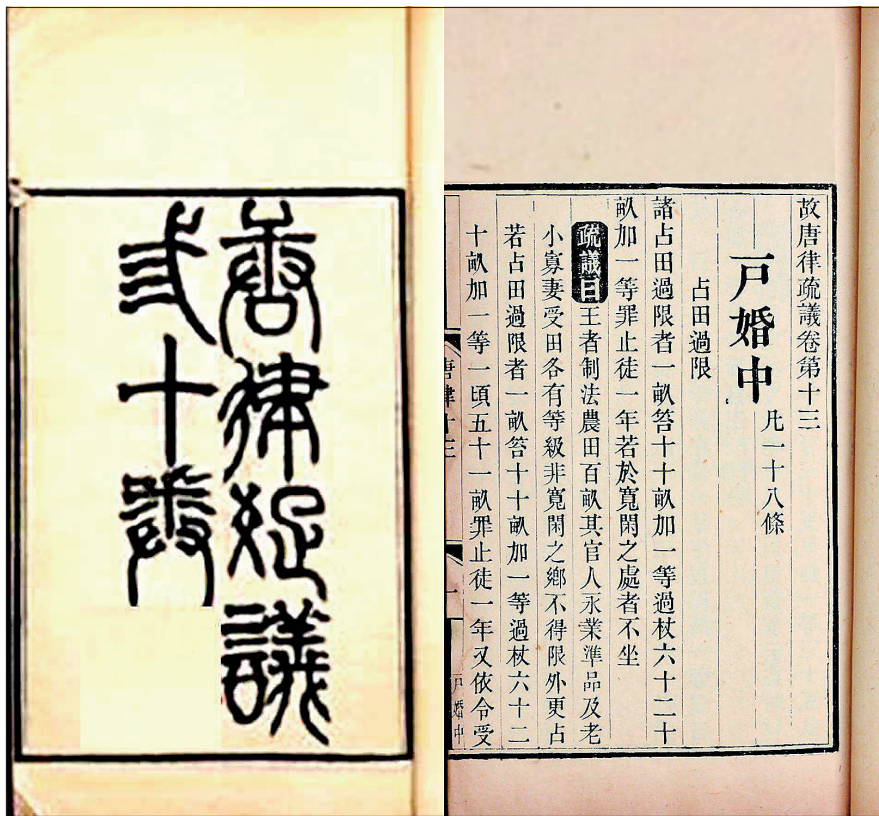 唐律疏議
弎十卷
故唐律疏議卷第十三
戶婚中 凡一十八條
占田過限
諸占田過限者一畝笞十十畝加一等過杖六十二十
畝加一等罪止徒一年若於寬閑之處者不坐
疏議曰王者制法農田百畝其官人永業準品及老
小寡妻受田各有等級非寬閑之鄉不得限外更占
若占田過限者一畝笞十十畝加一等過杖六十二
十畝加一等一頃五十一畝罪止徒一年又依令受
唐律十三 一 戶婚中